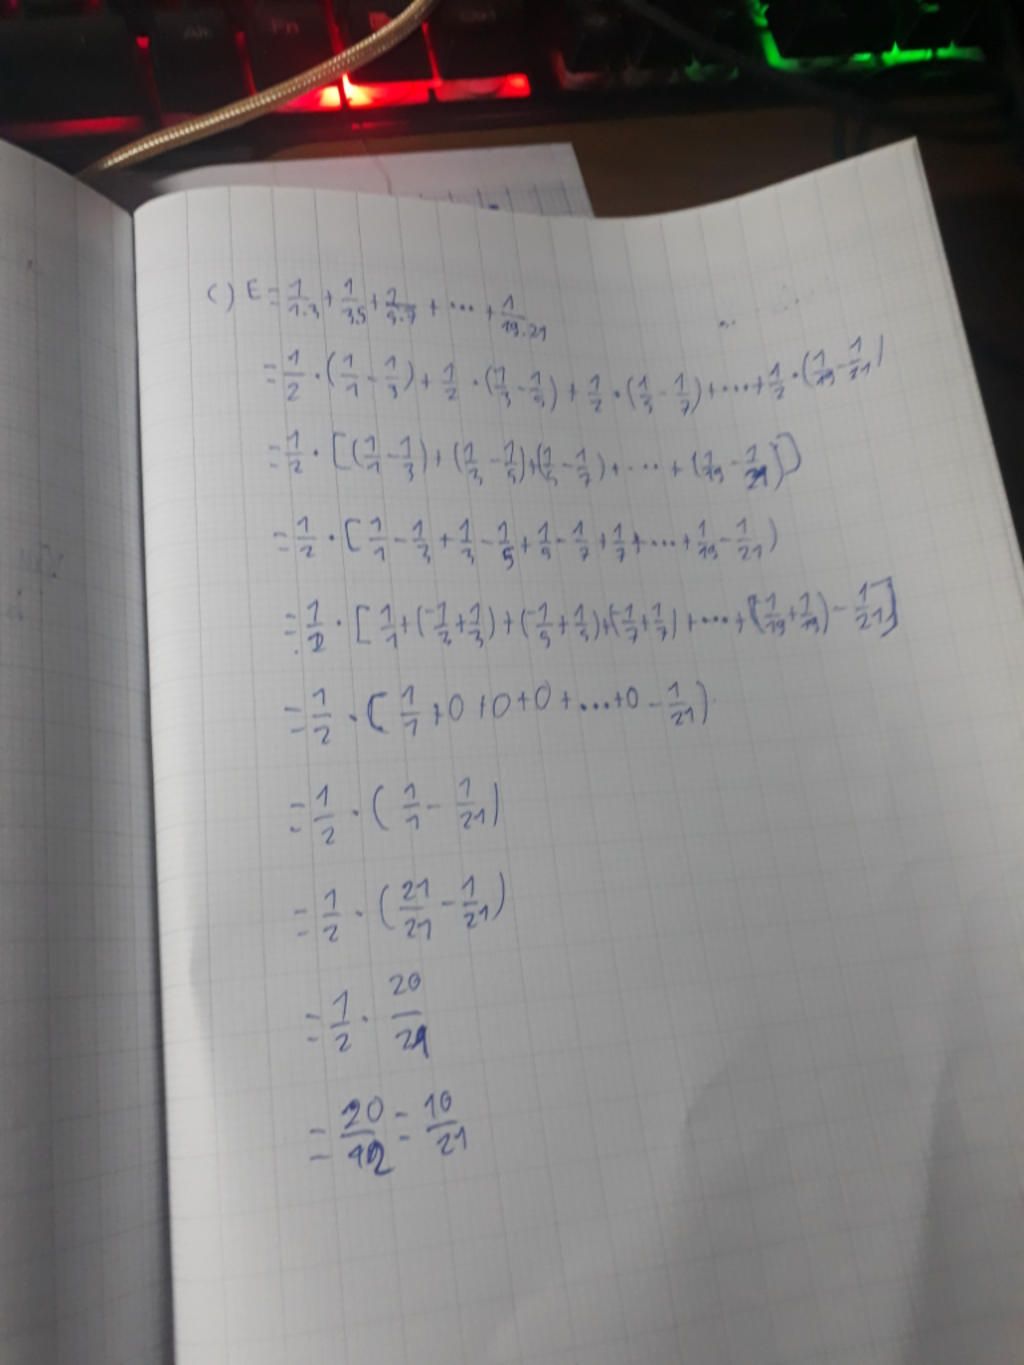 c) E = 1/1.3 + 1/3.5 + 1/5.7 + ... + 1/19.21
= 1/2 . (1/1 - 1/3) + 1/2 . (1/3 - 1/5) + 1/2 . (1/5 - 1/7) + ... + 1/2 . (1/19 - 1/21)
= 1/2 . [(1/1 - 1/3) + (1/3 - 1/5) + (1/5 - 1/7) + ... + (1/19 - 1/21)]
= 1/2 . [1/1 - 1/3 + 1/3 - 1/5 + 1/5 - 1/7 + 1/7 + ... + 1/19 - 1/21)
= 1/2 . [1/1 + (-1/3 + 1/3) + (-1/5 + 1/5) + (-1/7 + 1/7) + ... + (-1/19 + 1/19) - 1/21]
= 1/2 . (1/1 + 0 + 0 + 0 + ... + 0 - 1/21)
= 1/2 . (1/1 - 1/21)
= 1/2 . (21/21 - 1/21)
= 1/2 . 20/21
= 20/42 = 10/21